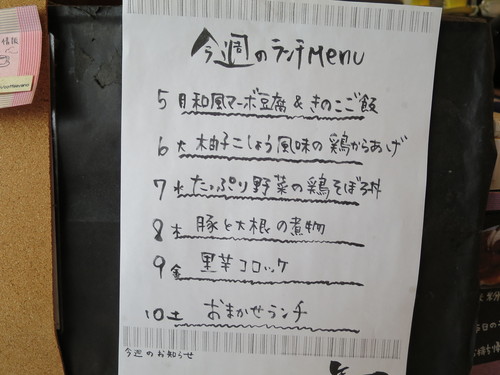 今週のランチMenu
5月 和風マーボ豆腐&きのこご飯
6火 柚子こしょう風味の鶏からあげ
7水 たっぷり野菜の鶏そぼろ丼
8木 豚と大根の煮物
9金 里芋コロッケ
10土 おまかせランチ
今週のお知らせ